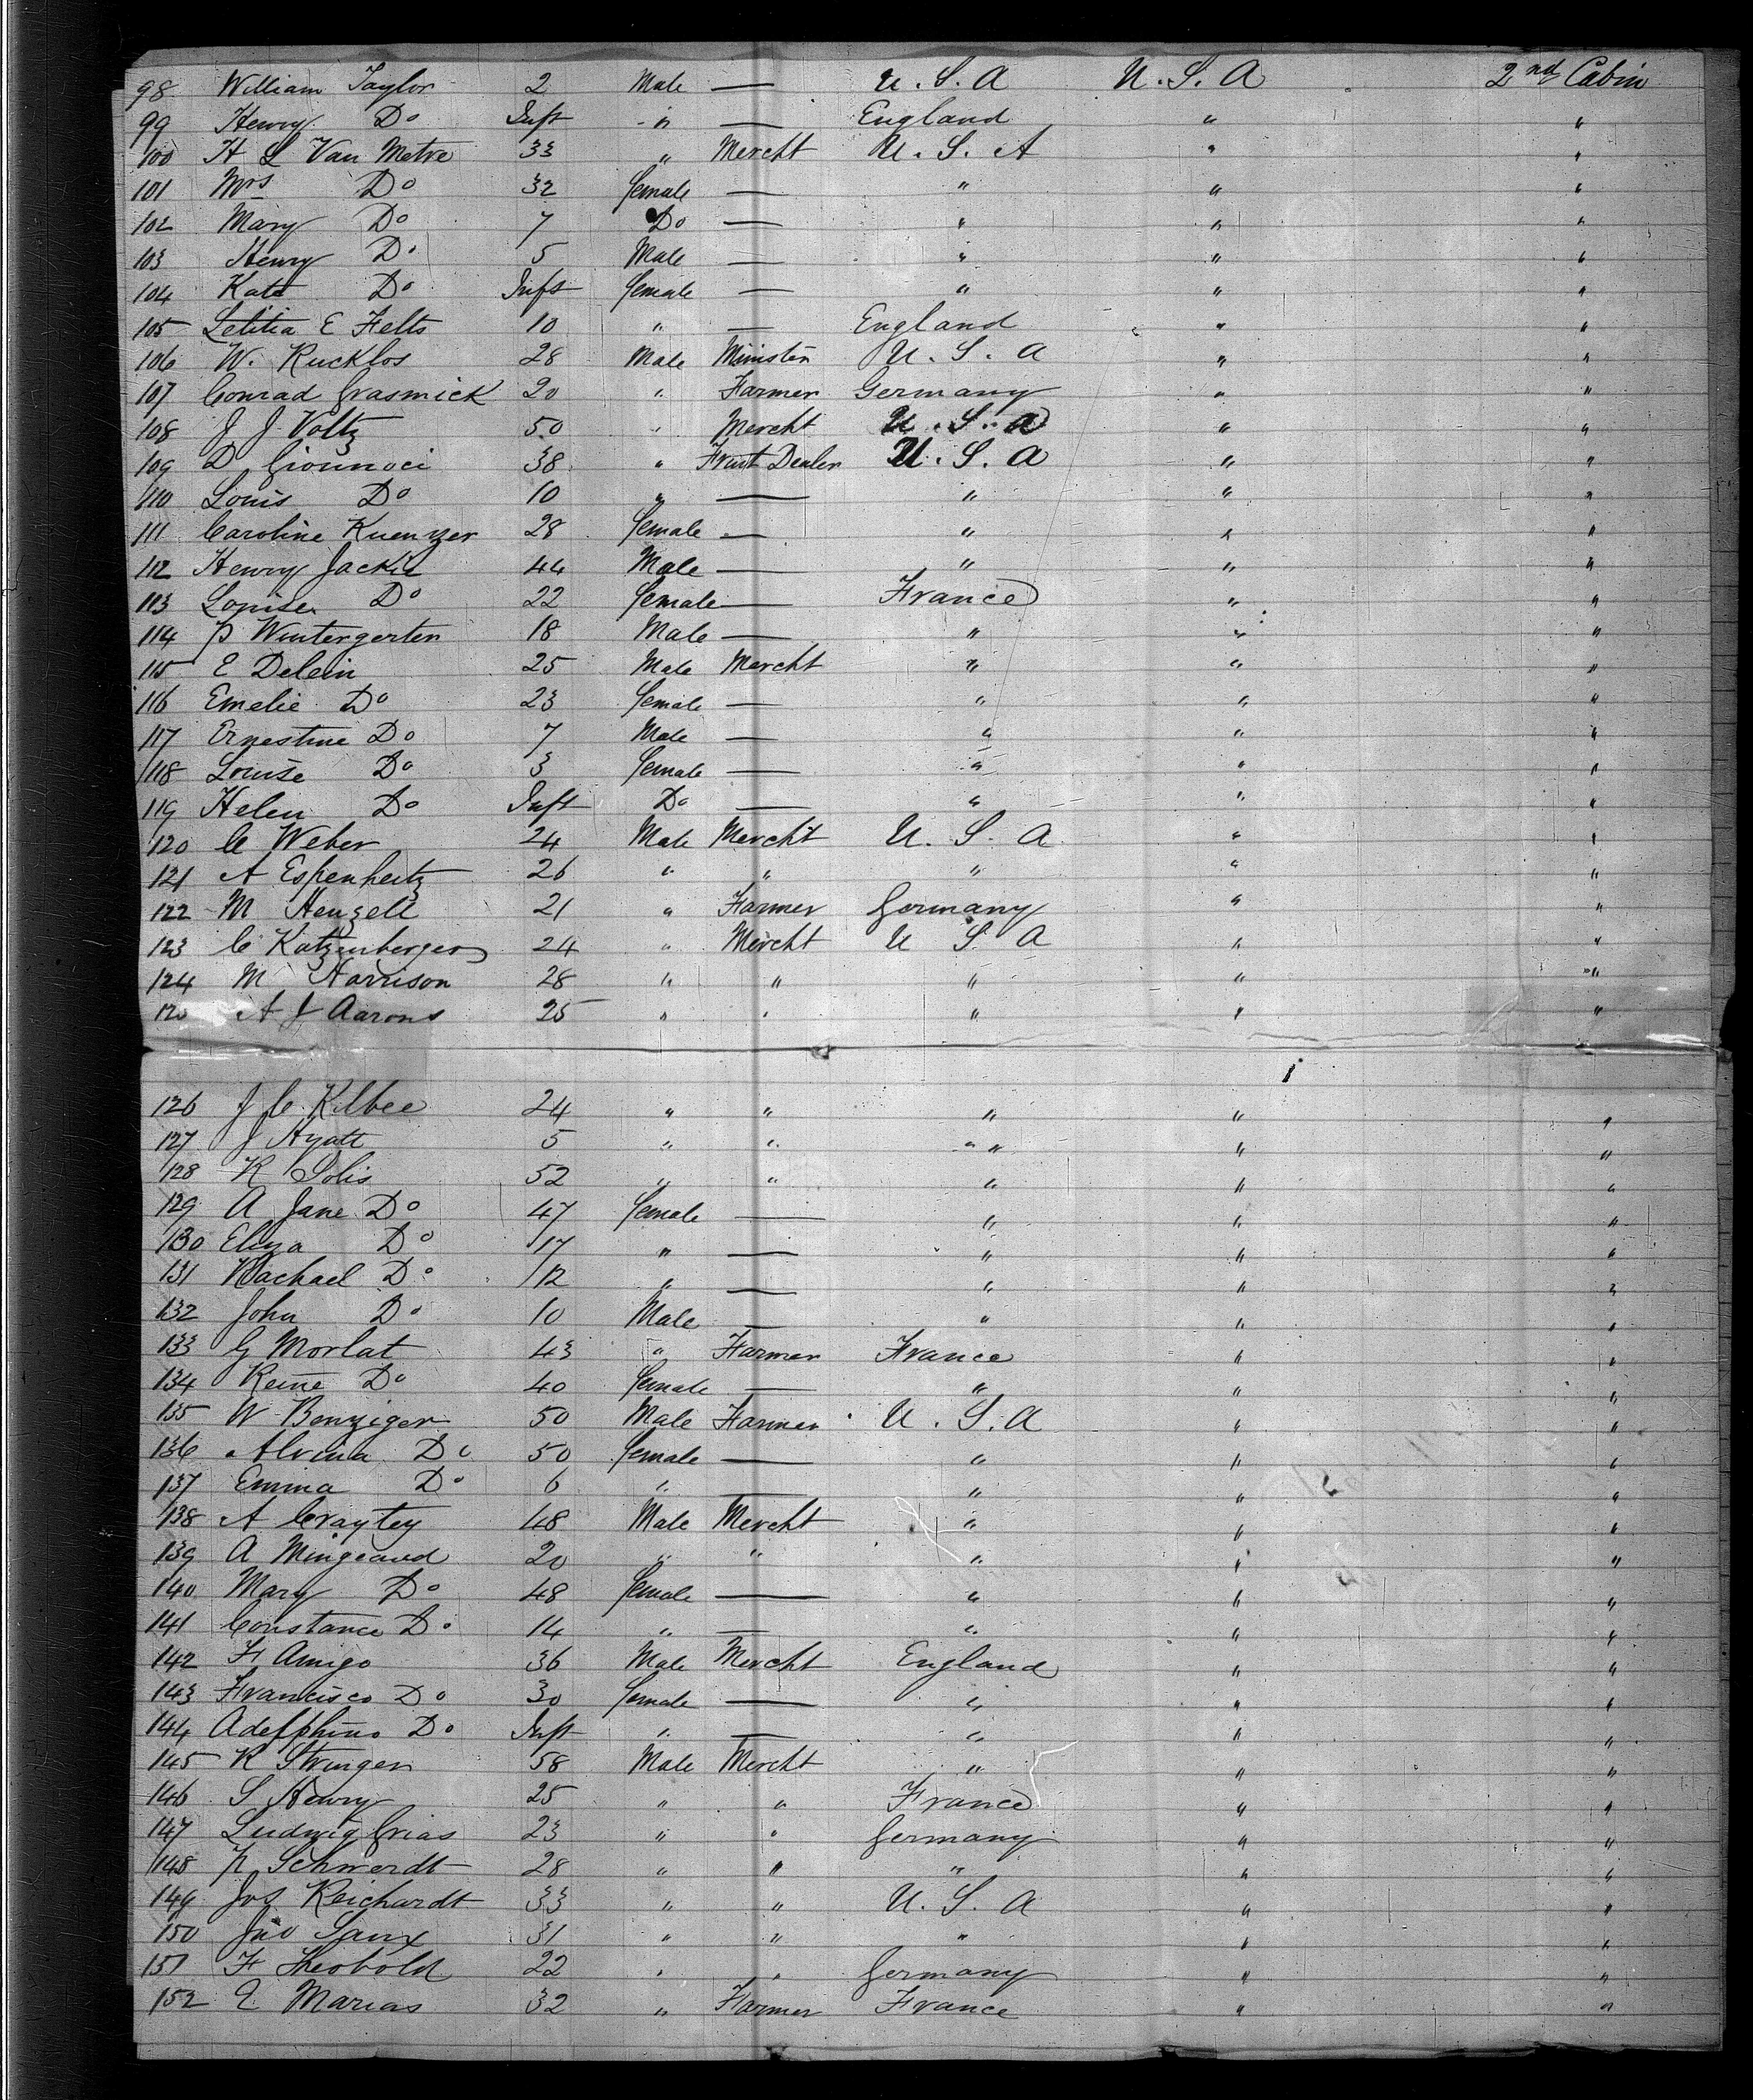 98 William Taylor 2 Male — U. S. A U. S. A 2nd Cabin
99 Henry Do Inft " — England " "
100 H L Van Metre 33 " Mercht U. S. A " "
101 Mrs Do 32 female — " " "
102 Mary Do 7 Do — " " "
103 Henry Do 5 Male — " " "
104 Kate Do Inft female — " " "
105 Letitia E Felts 10 " — England " "
106 W. Rucklos 28 Male Minister U. S. A " "
107 Conrad Grasmick 20 " Farmer Germany " "
108 J J Voltz 50 " Mercht U. S. A " "
109 D 38 " Fruit Dealer U. S. A " "
110 Louis Do 10 " — " " "
111 Caroline Kuenzer 28 female — " " "
112 Henry 44 Male — " " "
113 Louise Do 22 female — France " "
114 P Wintergerten 18 Male — " " "
115 E Delein 25 Male Mercht " " "
116 Emelie Do 23 female — " " "
117 Ernestine Do 7 Male — " " "
118 Louise Do 3 female — " " "
119 Helen Do Inft Do — " " "
120 C Weber 24 Male Mercht U. S. A " "
121 A Espenheitz 26 " " " " "
122 M Henzell 21 " Farmer Germany " "
123 C Katzenberger 24 " Mercht U S A " "
124 M Harrison 28 " " " " "
125 A J Aarons 25 " " " " "
126 J C Kilbee 24 " " " " "
127 J Hyatt 5 " " " " "
128 R Solis 52 " " " " "
129 A Jane Do 47 female — " " "
130 Eliza Do 17 " — " " "
131 Rachael Do 12 " — " " "
132 John Do 10 Male — " " "
133 G Morlat 43 " Farmer France " "
134 Reine Do 40 female — " " "
135 W Benziger 50 Male Farmer U. S. A " "
136 Alvina Do 50 female — " " "
137 Emma Do 6 " — " " "
138 A Craytey 48 Male Mercht " " "
139 A Mingeaud 20 " " " " "
140 Mary Do 48 female — " " "
141 Constance Do 14 " — " " "
142 F Amigo 36 Male Mercht England " "
143 Francisco Do 30 female — " " "
144 Adelphino Do Inft " — " " "
145 R Stringer 58 Male Mercht " " "
146 S Henry 25 " " France " "
147 Ludwig Crias 23 " " Germany " "
148 P Schwerdt 28 " " " " "
149 Jos Reichardt 33 " " U. S. A " "
150 Jno 31 " " " " "
151 F Theobold 22 " " Germany " "
152 E Marias 32 " Farmer France " "